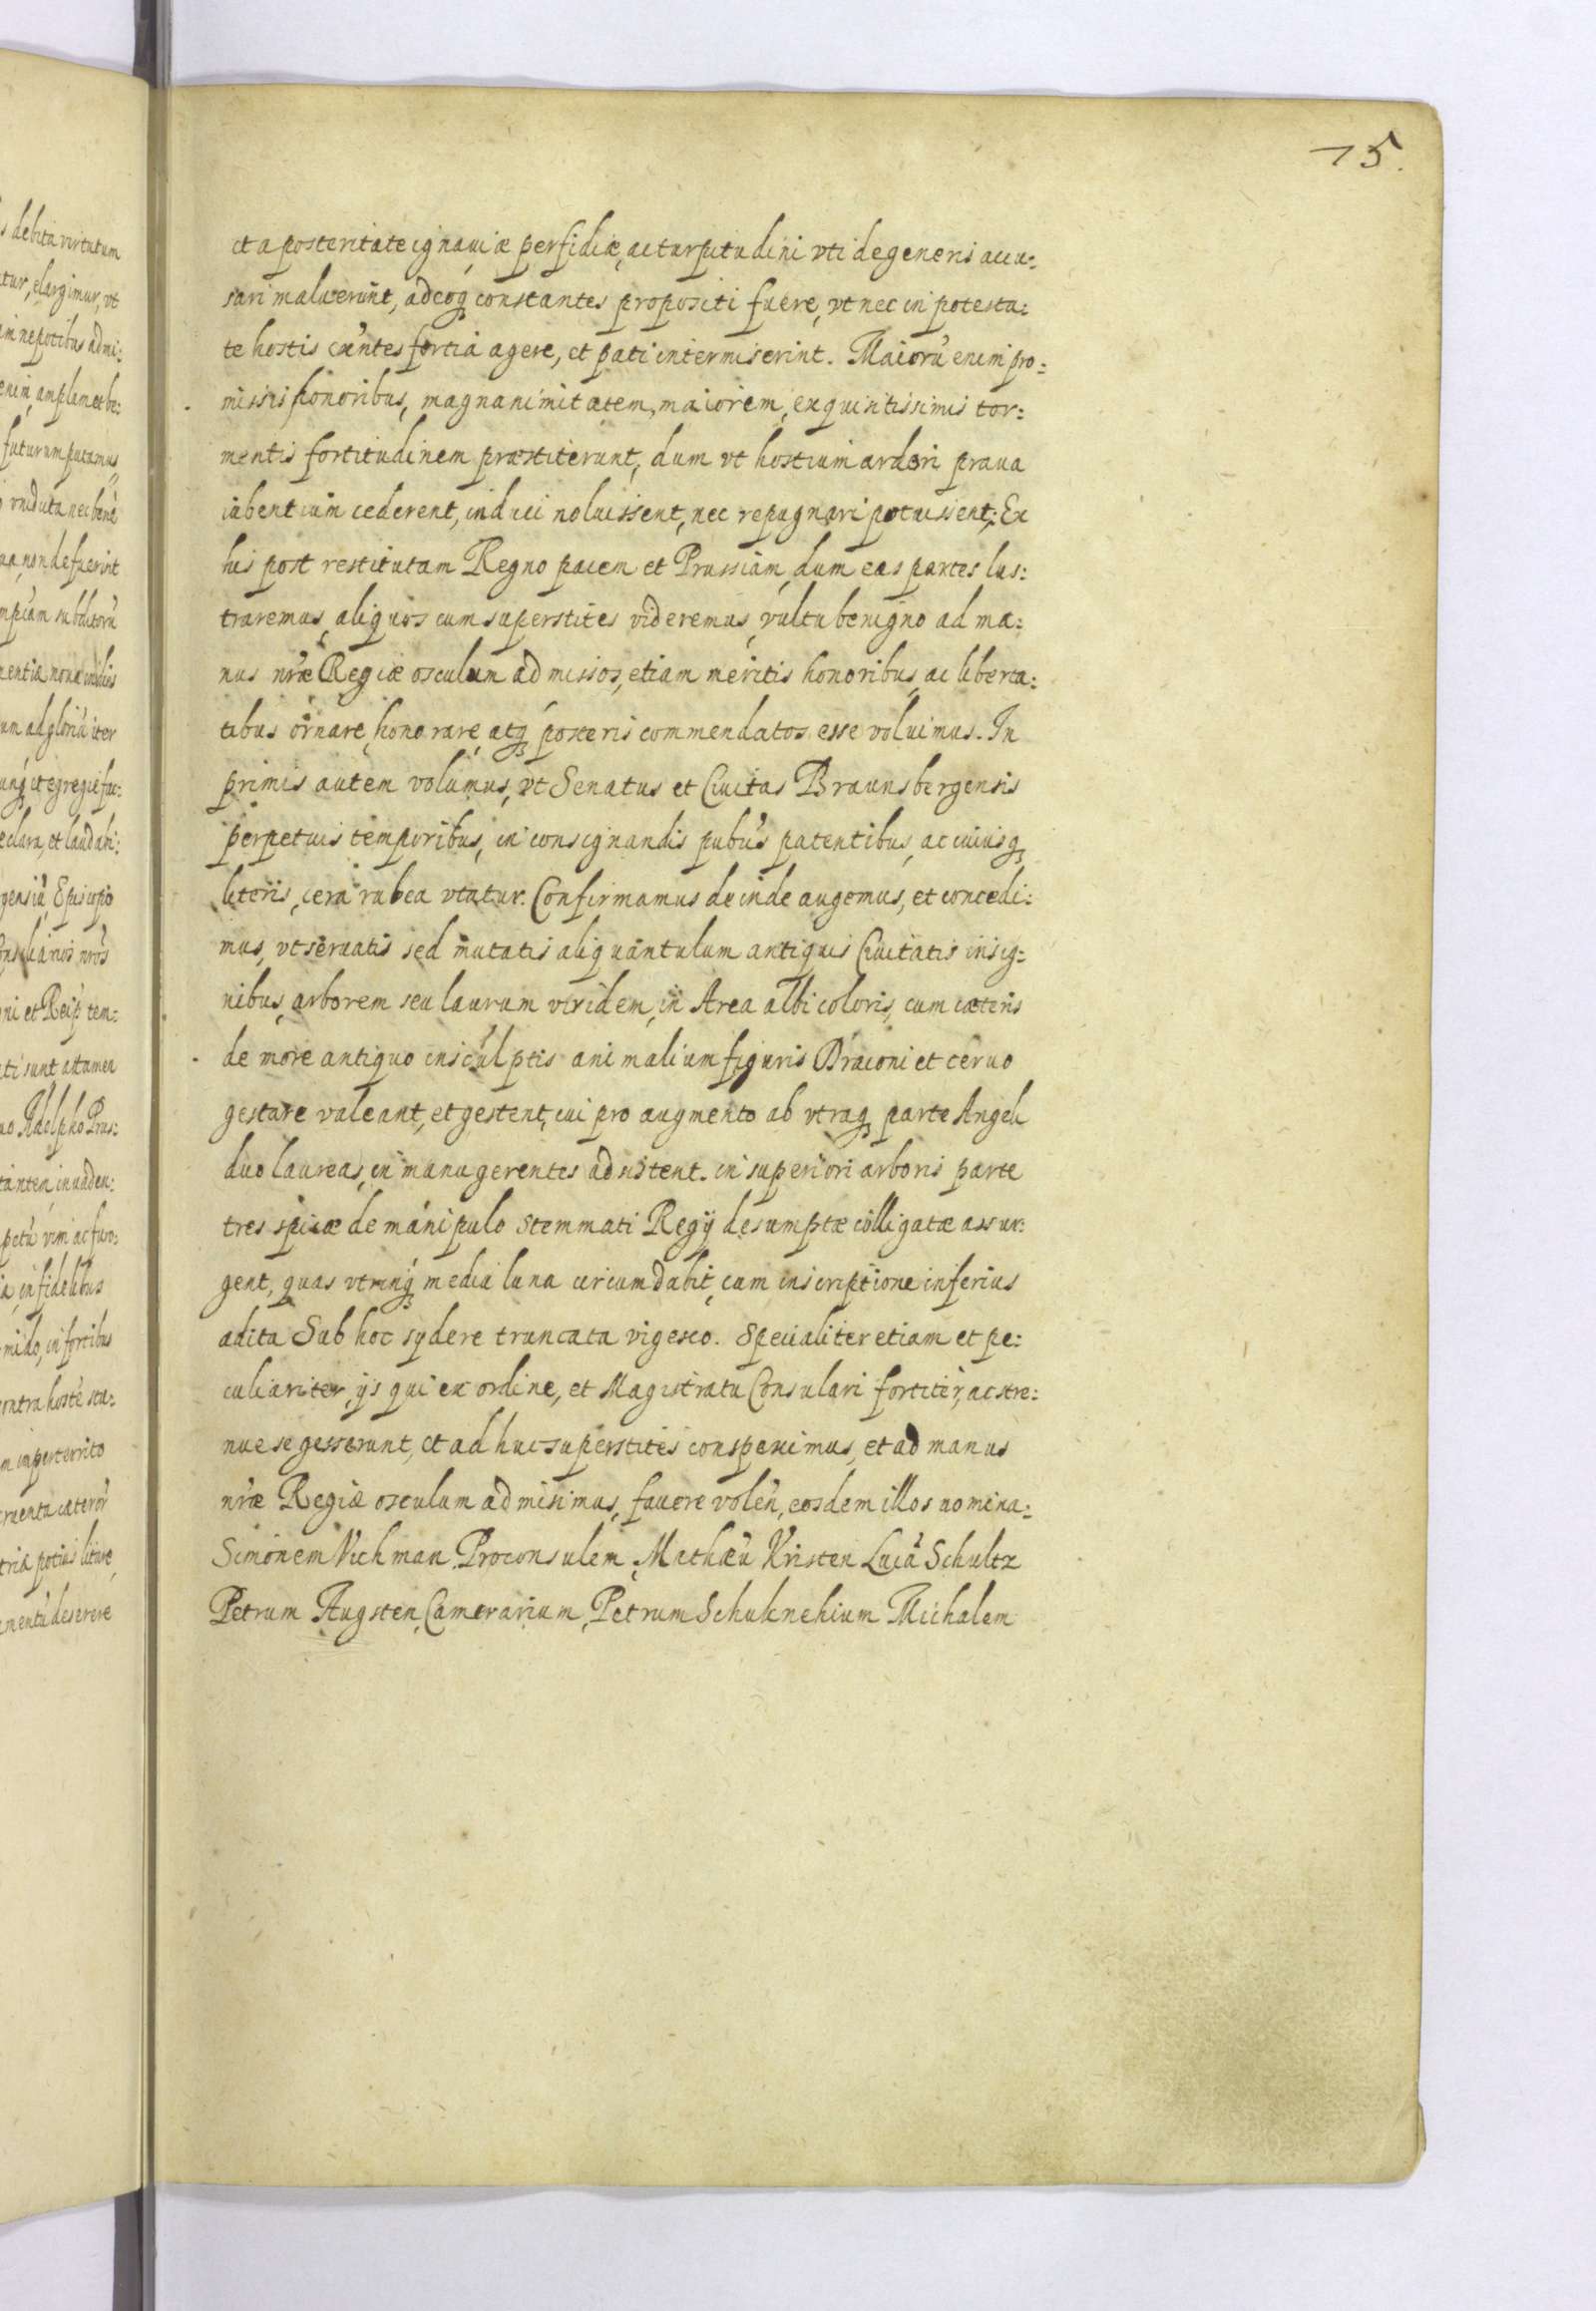 15.
et a posteritate ignauiæ perfidiæ, ac turpitudini vti degeneris accu:
sari maluerunt, adeoq; constantes propositi fuere, vt nec in potesta:
te hostis eūntes fortia agere, et pati intermiserint. Maiorū enim pro:
missis honoribus, magnanimitatem, maiorem, exquisitissimis tor:
mentis fortitudinem præstiterunt, dum vt hostium ardori praua
iubentium cederent, induci noluissent, nec repugnari potuissent; Ex
his post restitutam Regno pacem et Prussiam, dum eas partes lus:
traremus, aliquos cum superstites videremus, vultu benigno ad ma:
nus nr̄æ Regiæ osculum admissos, etiam meritis honoribus, ac liberta:
tibus ornare, honorare, atq; posteris commendatos esse voluimus. In
primis autem volumus, vt Senatus et Ciuitas Braunsbergensis
perpetuis temporibus, in consignandis pub͞cis patentibus, ac cuiusq;
literis, cera rubea vtatur. Confirmamus deinde augemus, et concedi:
mus, vt seruatis sed mutatis aliquantulum antiquis Ciuitatis insig:
nibus, arborem seu laurum viridem, in Area albi coloris, cum cæteris
de more antiquo insculptis animalium figuris Draconi et ceruo
gestare valeant, et gestent, cui pro augmento ab vtraq; parte Angeli
duo laureas, in manu gerentes adsistent. in superiori arboris parte
tres spicæ de manipulo stemmati Regij desumptæ colligatæ assur:
gent, quas vtrinq; media luna circumdabit, cum inscriptione inferius
adita Sub hoc sydere truncata vigesco. Specialiter etiam et pe:
culiariter, ijs qui ex ordine, et Magistratu Consulari fortiter, ac stre:
nue se gesserunt, et ad huc superstites conspeximus, et ad manus
nr̄æ Regiæ osculum admisimus, fauore volen̄, eosdem illos nomina:
Simonem Vichman Proconsulem, Mathæū Kristen Lucā Schultz
Petrum Augsten, Camerarium, Petrum Schuknehium Michalem
s debita virtutum
tur, elargimur, vt
in nepotibus admi:
enim, amplam et be:
futurum putamus
nec bene
ua, non defuerint
subditorū
um ad gloriā iter
et egregie fac:
eclara, et laudabi:
gensiū, Episcopo
onsiliarios nr̄os
ni et Reip̄ tem:
ti sunt attamen
uo Adolpho Prus:
tantem, inuaden:
petū vim ac furo:
infidelibus
mido, in fortibus
ontra hostē sta:
m imperterrito
cruenta cæterōr̄
triā potius litare
mentū deserere